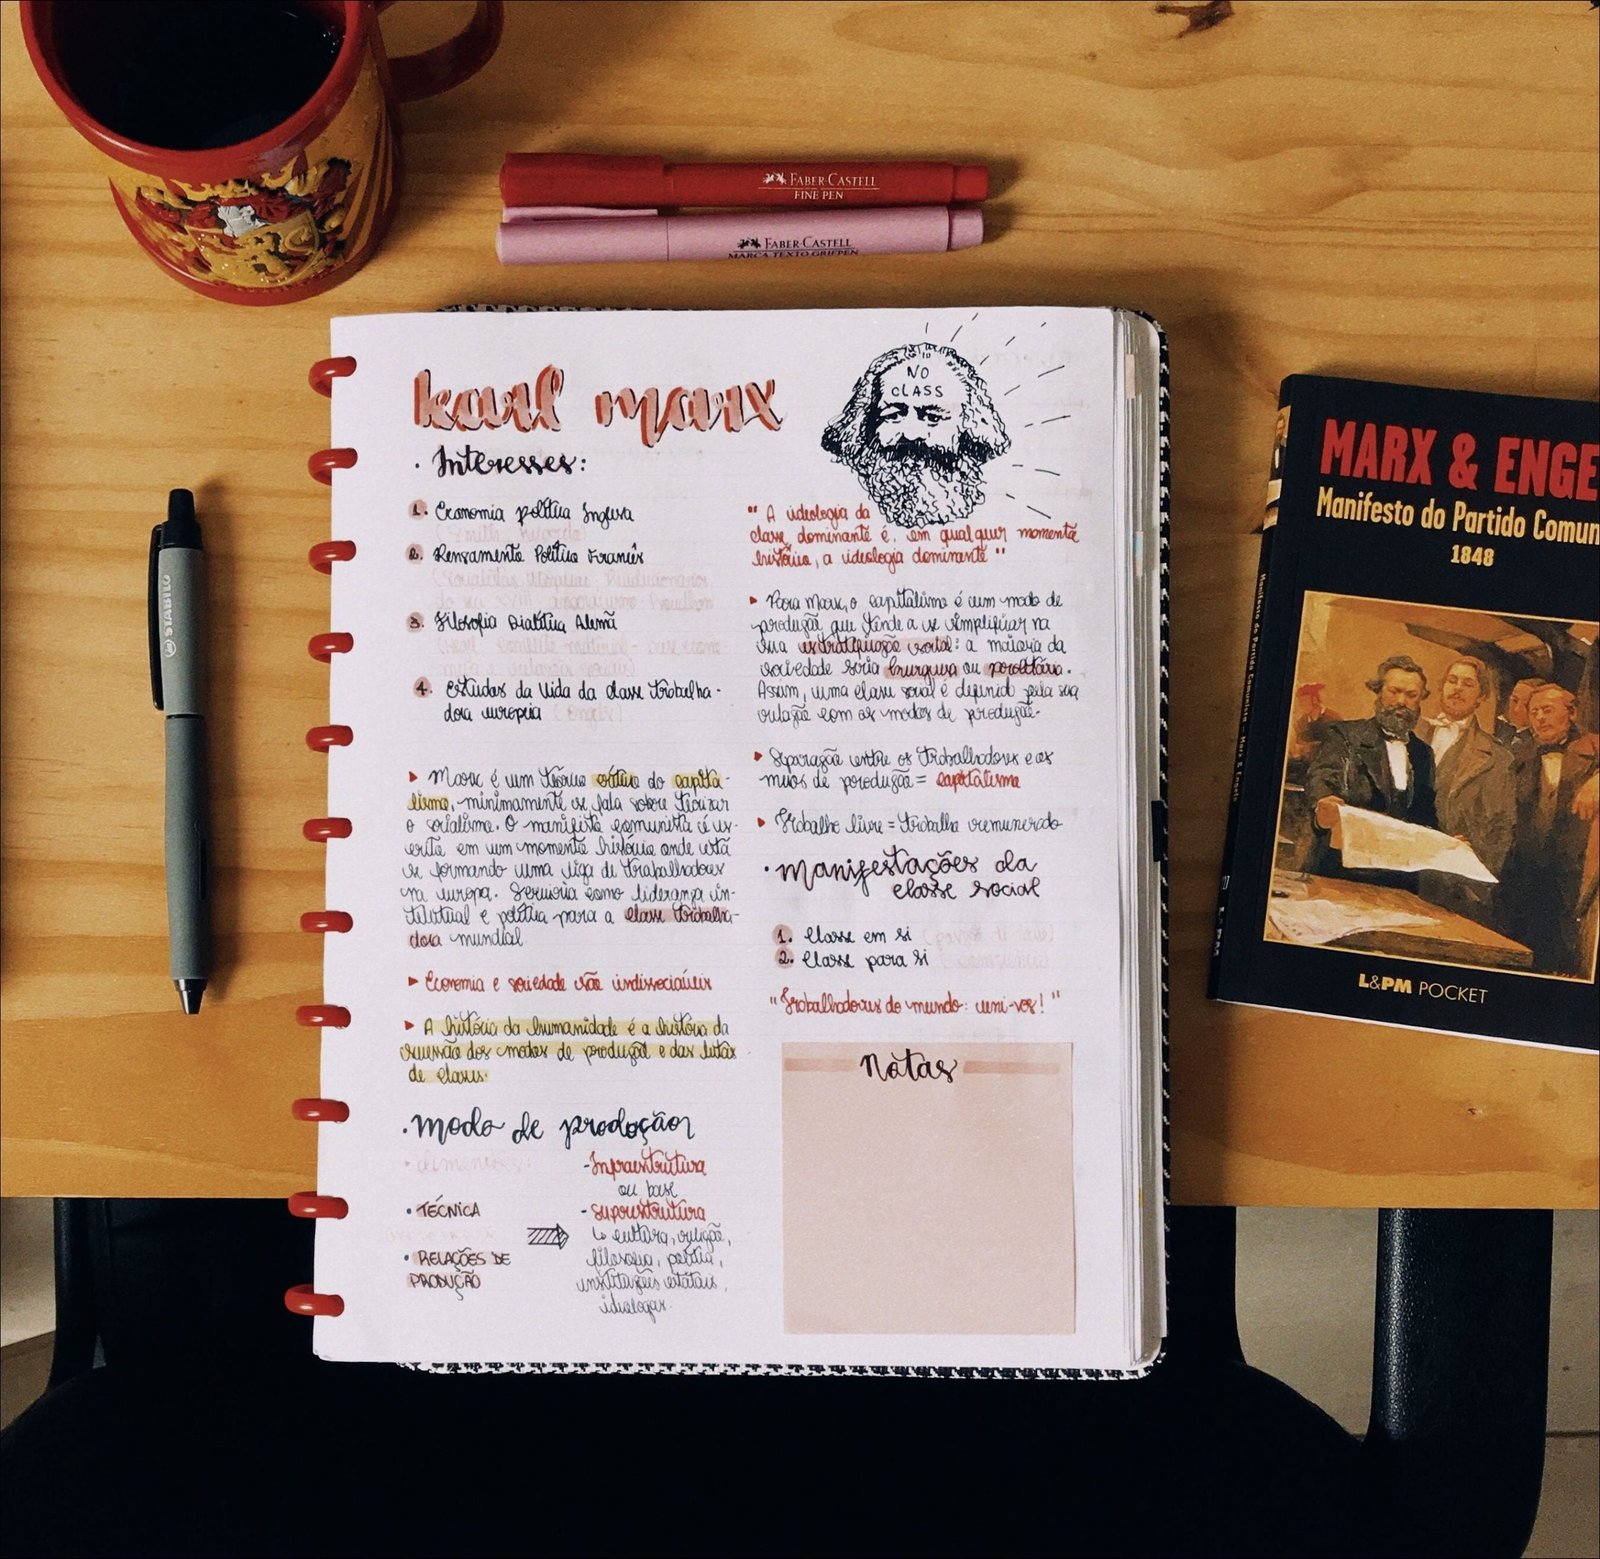 FABER-CASTELL
FINE PEN
FABER-CASTELL
MARCA TEXTO GRIFPEN
STABILO
karl marx
NO
CLASS
· Interesses:
1. Economia política Inglesa
2. Pensamento Político Francês
3. Filosofia Dialética Alemã
4. Estudos da Vida da classe trabalha-
dora europeia
▸ Marx é um teórico crítico do capita-
lismo, minimamente se fala sobre teorizar
o socialismo. O manifesto comunista é es-
crito em um momento histórico onde está
se formando uma liga de trabalhadores
na europa. Serviria como liderança in-
telectual e política para a classe trabalha-
dora mundial
▸ Economia e sociedade são indissociáveis
▸ A história da humanidade é a história da
sucessão dos modos de produção e das lutas
de classes.
· modo de produção
· dimensões:
· TÉCNICA
· RELAÇÕES DE
PRODUÇÃO
- Infraestrutura
ou base
- superestrutura
↳ cultura, religião,
filosofia, política,
instituições estatais,
ideologias.
" A ideologia da
classe dominante é, em qualquer momento
histórico, a ideologia dominante "
▸ Para Marx, o capitalismo é um modo de
produção que tende a se simplificar na
sua estratificação social: a maioria da
sociedade seria burguesa ou proletária.
Assim, uma classe social é definida pela sua
relação com os modos de produção.
▸ Separação entre os trabalhadores e os
meios de produção = capitalismo
▸ Trabalho livre = trabalho remunerado
· manifestações da
classe social
1. Classe em si
2. Classe para si
"Trabalhadores do mundo: uni-vos!"
Notas
MARX & ENGE
Manifesto do Partido Comun
1848
L&PM POCKET
Manifesto do Partido Comunista – Marx & Engels
L&PM